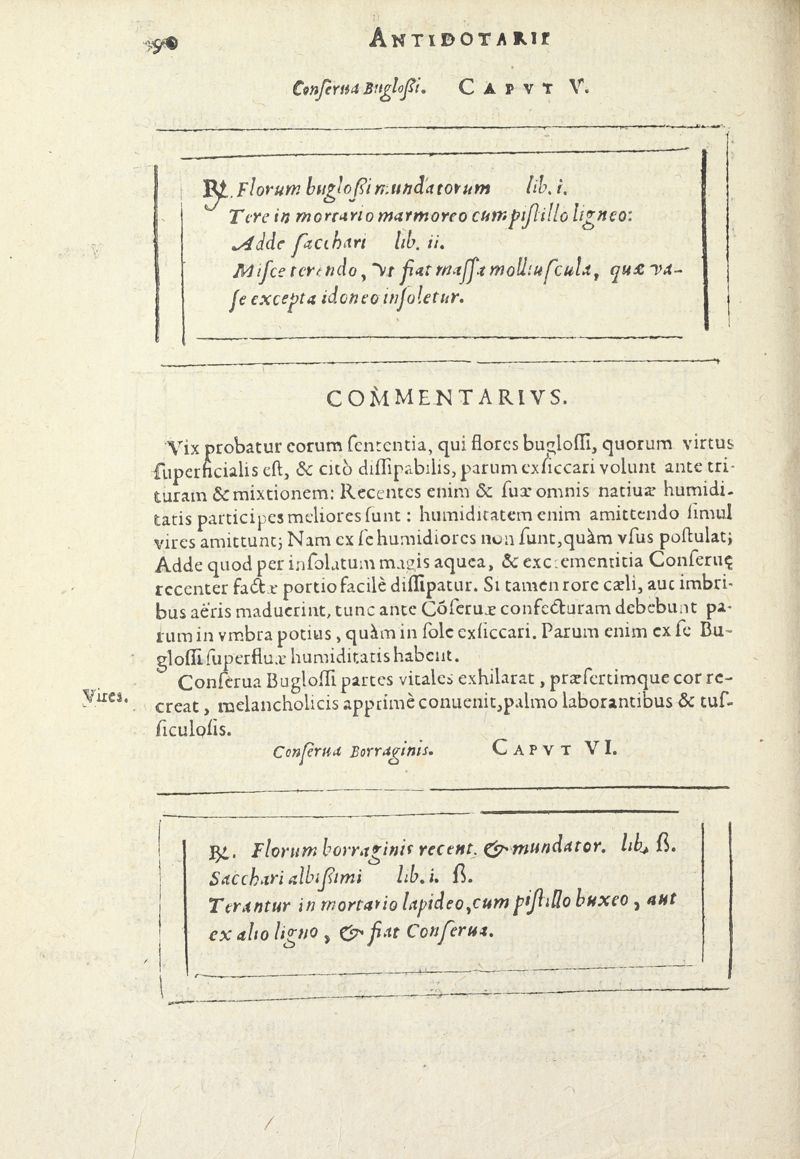 ANTIDOTARII
Conserua Buglossi. CAPVT V.
℞. Florum buglossi mundatorum lib. i.
Tere in mortario marmoreo cum pistillo ligneo:
Adde sacchari lib. ii.
Misce terendo, vt fiat massa molliuscula, quæ va-
se excepta idoneo insoletur.
COMMENTARIVS.
Vix probatur eorum sententia, qui flores buglossi, quorum virtus
superficialis est, & citò dissipabilis, parum exsiccari volunt ante tri-
turam & mixtionem: Recentes enim & suæ omnis natiuæ humidi-
tatis participes meliores sunt: humiditatem enim amittendo simul
vires amittunt; Nam ex se humidiores non sunt, quàm vsus postulat;
Adde quod per insolatum magis aquea, & excrementitia Conseruę
recenter factæ portio facilè dissipatur. Si tamen rore cæli, aut imbri-
bus aëris maduerint, tunc ante Cōseruæ confecturam debebunt pa-
rum in vmbra potius, quàm in sole exsiccari. Parum enim ex se Bu-
glossi superfluæ humiditatis habent.
Conserua Buglossi partes vitales exhilarat, præsertimque cor re-
Vires. creat, melancholicis apprimè conuenit, palmo laborantibus & tus-
siculosis.
Conserua Borraginis. CAPVT VI.
℞. Florum borraginis recent. & mundator. lib. ß.
Sacchari albissimi lib. i. ß.
Terantur in mortario lapideo, cum pistillo buxeo, aut
ex alio ligno, & fiat Conserua.